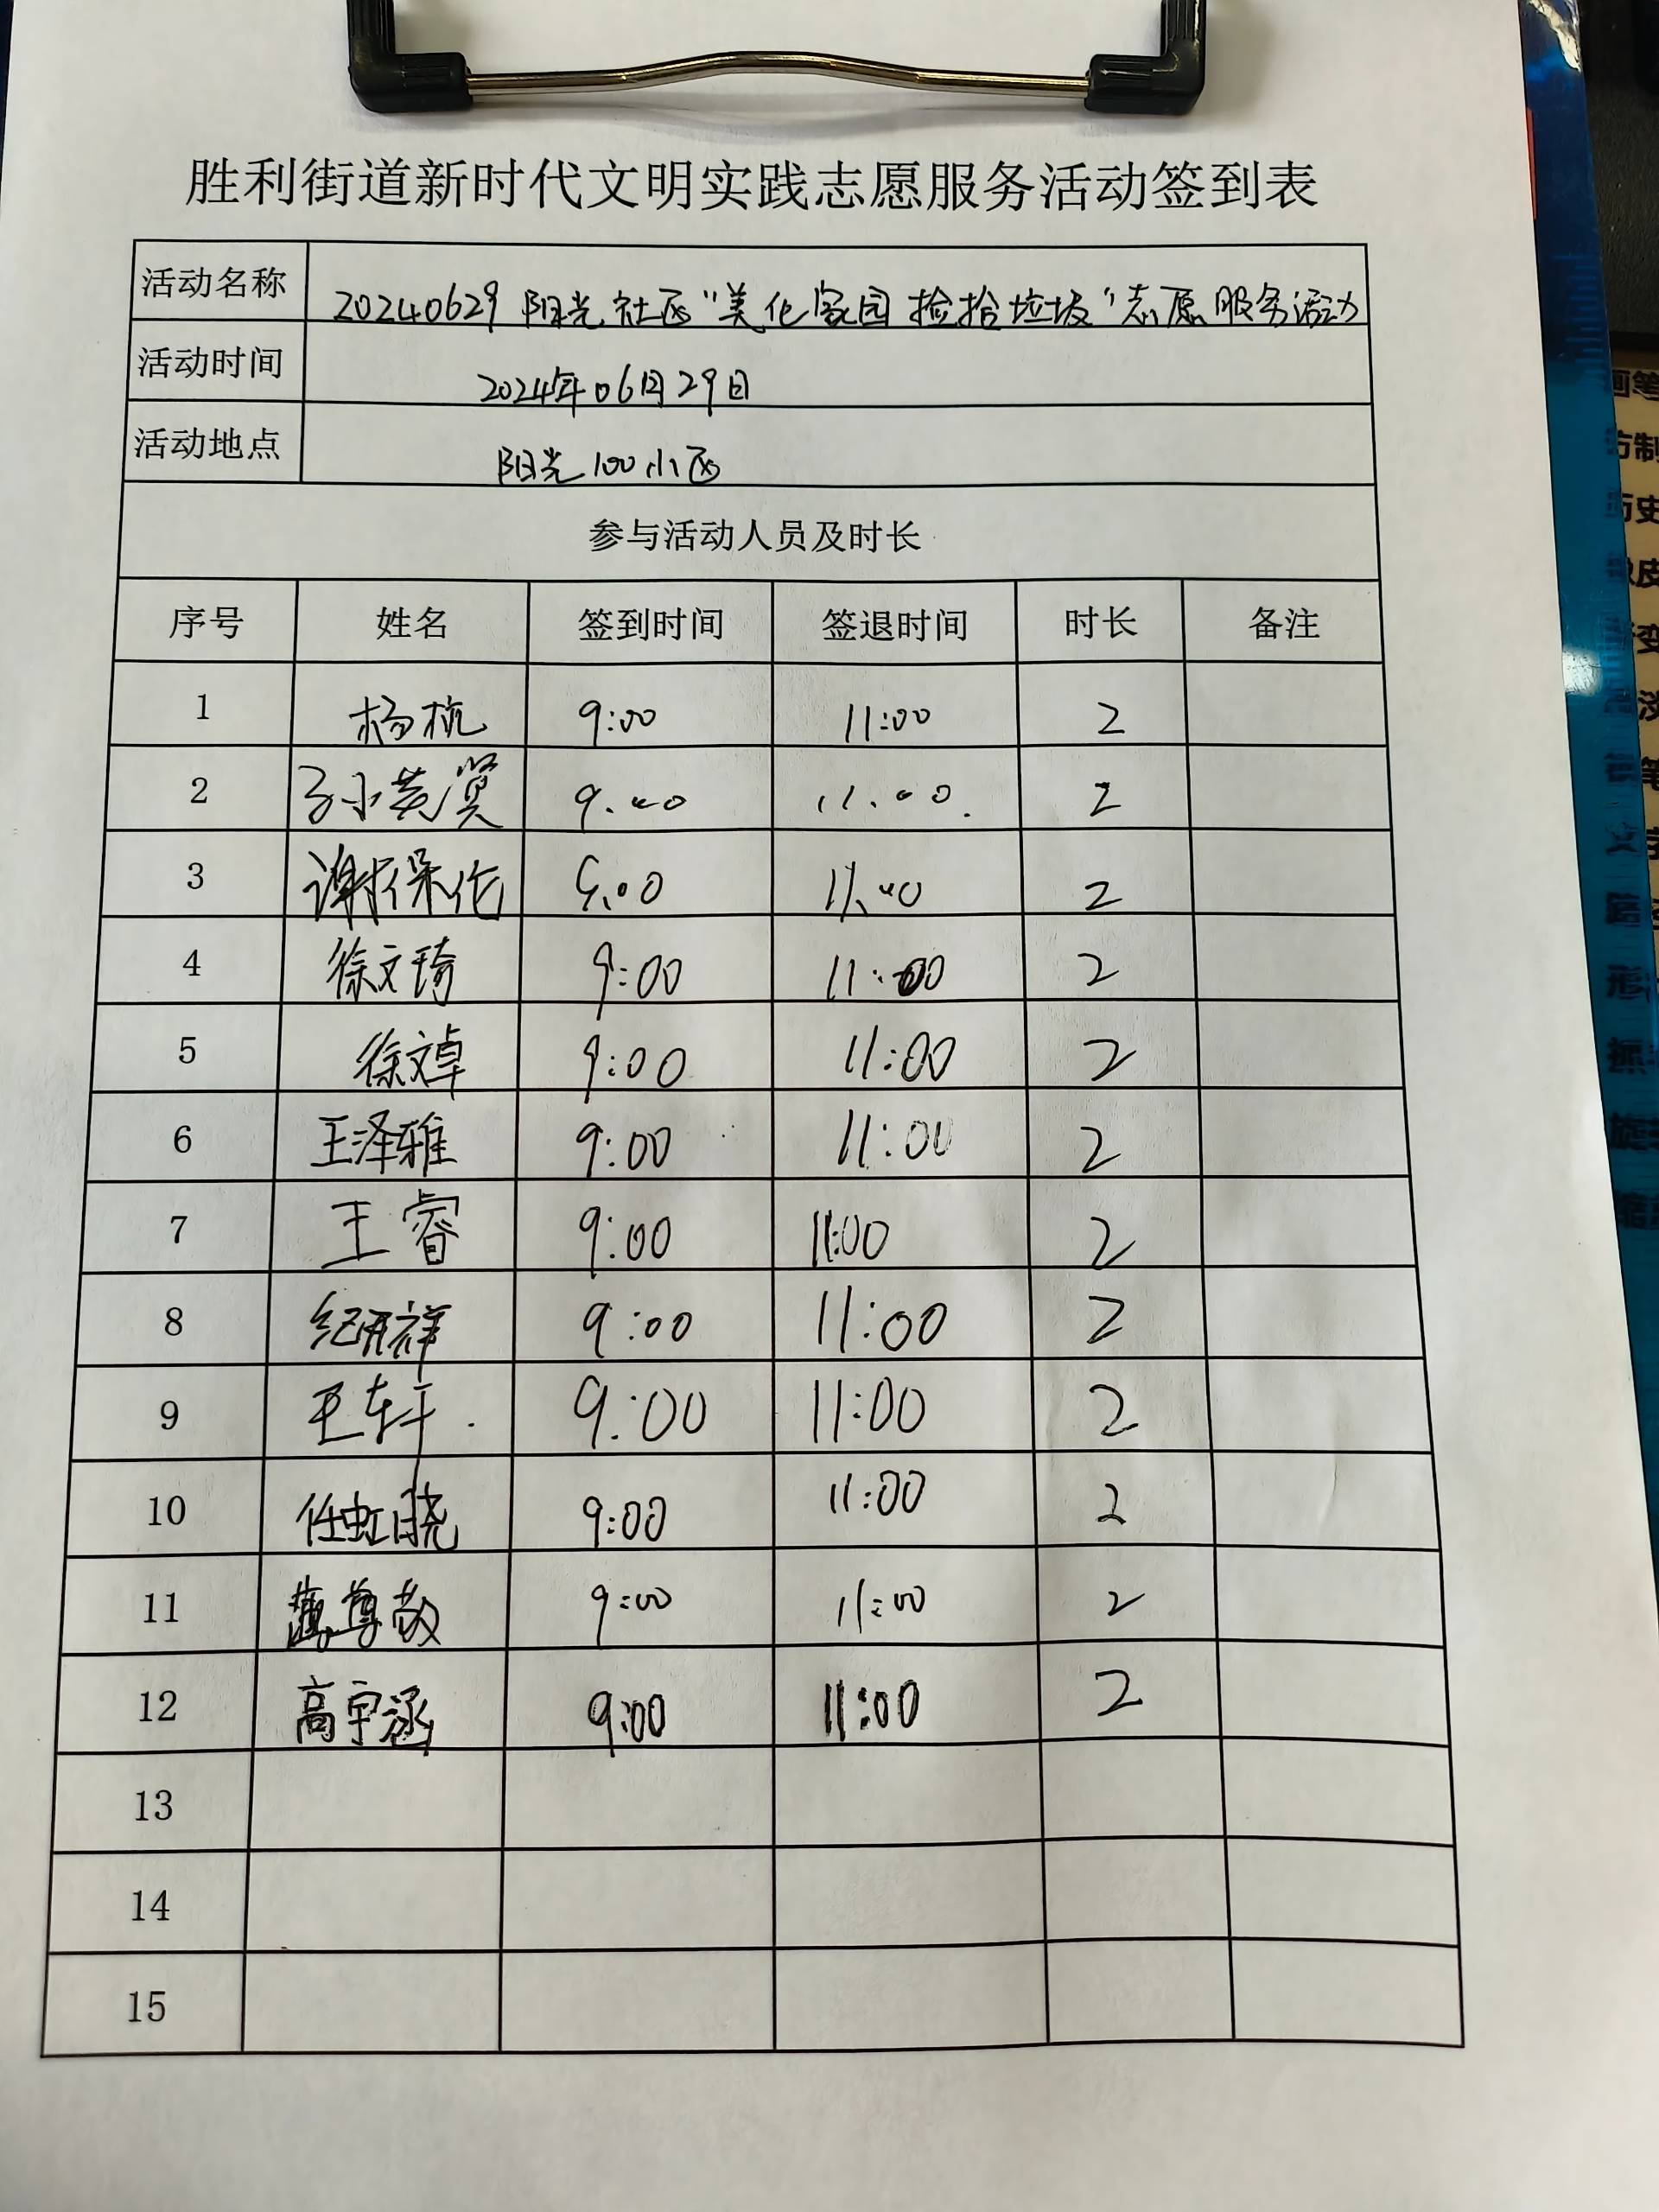 胜利街道新时代文明实践志愿服务活动签到表
活动名称 20240629 阳光社区"美化家园 捡拾垃圾"志愿服务活动
活动时间 2024年06月29日
活动地点 阳光100小区
参与活动人员及时长
序号 姓名 签到时间 签退时间 时长 备注
1 杨杭 9:00 11:00 2
2 9:00 11:00 2
3 谢保伦 9:00 11:00 2
4 徐文琦 9:00 11:00 2
5 徐文卓 9:00 11:00 2
6 王泽雅 9:00 11:00 2
7 王睿 9:00 11:00 2
8 纪开祥 9:00 11:00 2
9 王轩 9:00 11:00 2
10 任虹晓 9:00 11:00 2
11 尊敬 9:00 11:00 2
12 高宇涵 9:00 11:00 2
13
14
15